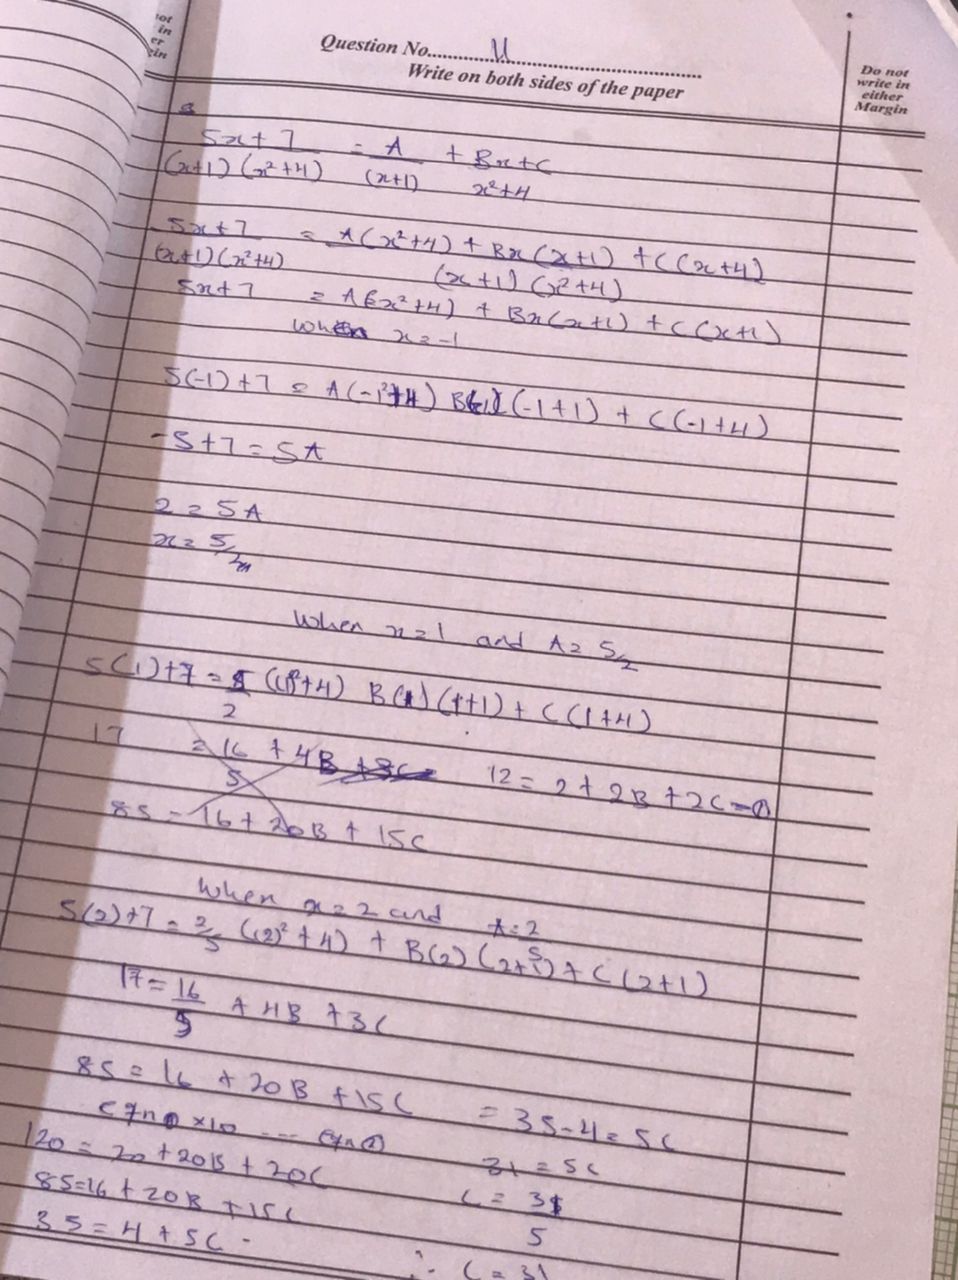 ot
in
er
gin
Question No............11............
Write on both sides of the paper
Do not
write in
either
Margin
5x+7 = A + Bx+C
(x+1) (x²+4) (x+1) x²+4
5x+7 = A(x²+4) + Bx(x+1) + C(x+4)
(x+1)(x²+4) (x+1) (x²+4)
5x+7 = A(x²+4) + Bx(x+1) + C(x+1)
when x=-1
5(-1)+7 = A(-1²+4) B(-1)(-1+1) + C(-1+4)
-5+7=5A
2=5A
x=5/2
When x=1 and A=5/2
5(1)+7=5/2 ((1)²+4) B(1)(1+1) + C(1+4)
17 = 16/5 + 4B +3C 12 = 2+2B+2C
85 = 16+20B + 15C
When x=2 and A=2/5
5(2)+7=2/5 ((2)²+4) + B(2)(2+1)+C(2+1)
17=16/5 + 4B +3C
85 = 16 + 20B + 15C = 35-4=5C
eqn ① x10 --- eqn 31=5C
120=20+20B+20C C = 31/5
85=16+20B+15C
35=4+5C. ∴ C=31